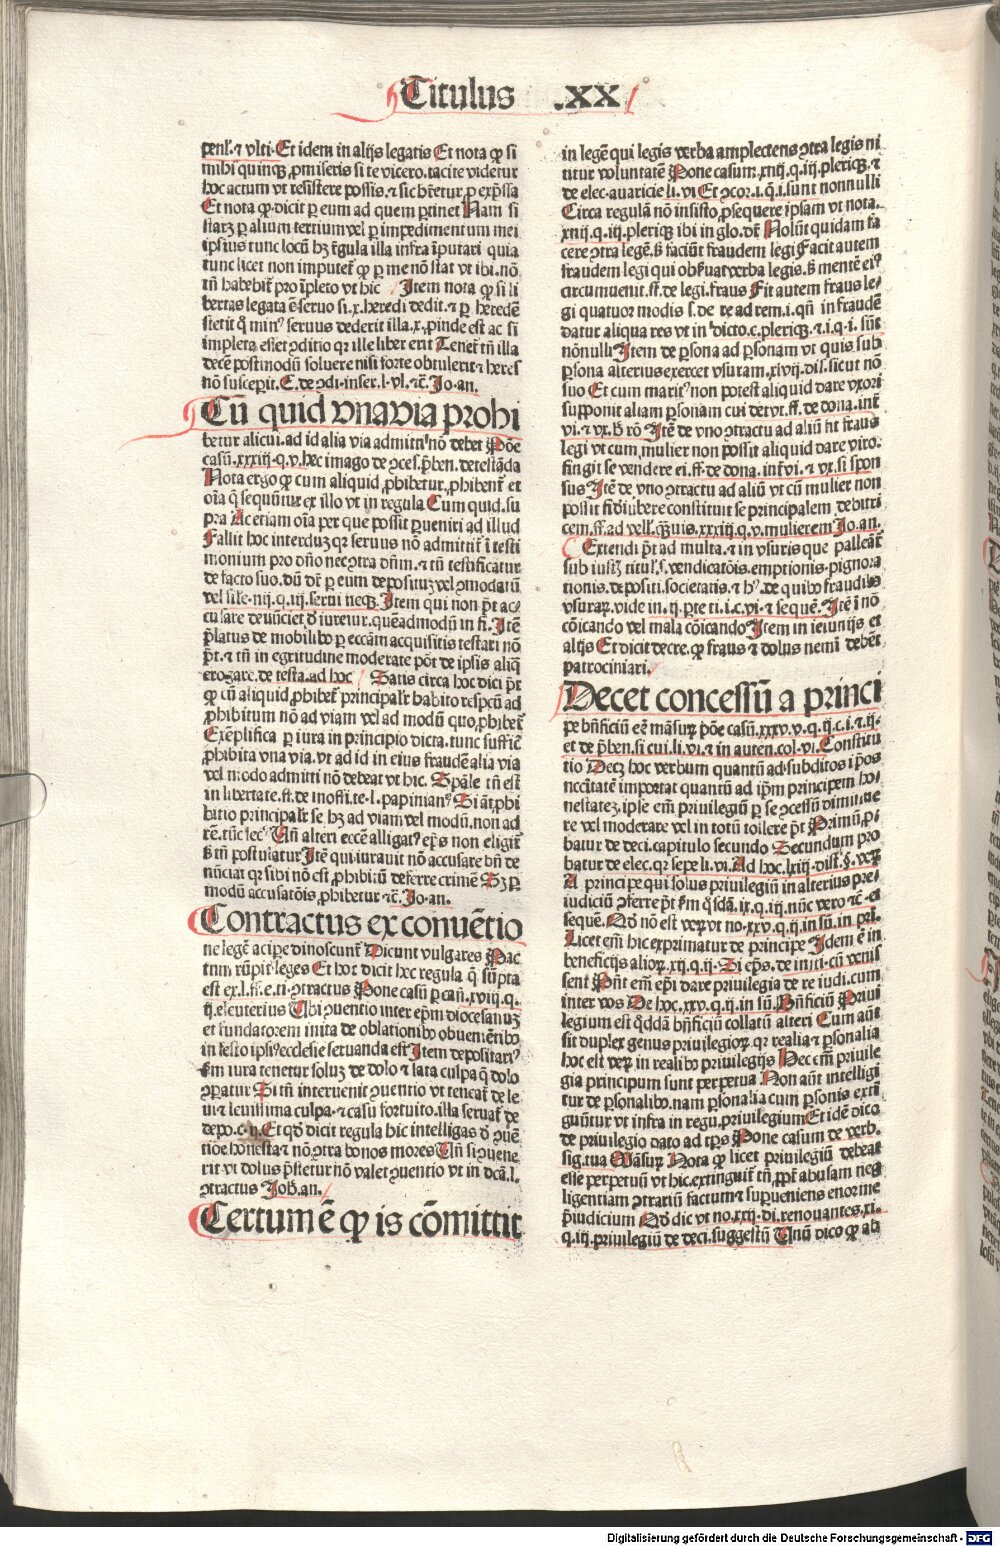 Titulus .XX
penl'. ⁊ vlti. Et idem in alijs legatis Et nota ꝙ si
mihi quinqꝫ ꝓmiseris si te vicero. tacite videtur
hoc actum vt resistere possis. ⁊ sic hr̄etur ꝑ exp̄ssa
Et nota ꝙ dicit ꝑ eum ad quem ꝑtinet Nam si
starꝫ ꝑ alium tertium vel ꝑ impedimentum mei
ipsius tunc locū hꝫ r̄gula illa infra īputari quia
tunc licet non imputet᷑ ꝙ ꝑ me nō stat vt ibi. nō
tn̄ habebit᷑ pro īpleto vt hic Item nota ꝙ si li
bertas legata ē seruo si .x. heredi dedit. ⁊ ꝑ heredē
stetit q̄ minꝰ seruus dederit illa .x. ꝓinde est ac si
impleta esset ꝯditio qr ille liber erit Tenet᷑ tn̄ illa
decē postmodū soluere nisi forte obtulerit ⁊ heres
nō susceperit. E. de ꝯdi. inser. l. vl. ⁊c̄. Jo. an.
Cū quid vna via prohi
betur alicui. ad id alia via admitti nō debet Pōe
casū .xxxij. q. v. hec imago de ꝯces. p̄ben. detestāda
Nota ergo ꝙ cum aliquid ꝓhibetur, ꝓhibent᷑ et
oīa q̄ sequūtur ex illo vt in regula Cum quid. su
pra Ac etiam oīa per que possit ꝑueniri ad illud
Fallit hoc interdū qr seruus nō admittit᷑ ī testi
monium pro dn̄o nec ꝯtra dn̄m. ⁊ tn̄ testificatur
de facto suo. dū dr̄ ꝑ eum depositū vel ꝯmodatū
vel sile. iiij. q. iij. serui neqꝫ. Item qui non pr̄t ac/
culare denūciet ō iuretur. quēadmodū in fi. Itē
p̄latus de mobilibꝰ ꝑ eccām acquisitis testari nō
pr̄t. ⁊ tn̄ in egritudine moderate pōt de ipsis aliqd̄
erogare. de testa. ad hoc Satis circa hoc dici pr̄t
ꝙ cū aliquid ꝓhibet᷑ principalr̄ habito respcū ad
ꝓhibitum nō ad viam vel ad modū quo ꝓhibet᷑
Exēplifica ꝑ iura in principio dicta. tunc sufficē
ꝓhibita vna via. vt ad id in eius fraudē alia via
vel modo admitti nō debeat vt hic. Spāle tn̄ est
in libertate. ff. de inoffi. te. l. papinianꝰ Si āt ꝓhi
bitio principalr̄ se hꝫ ad viam vel modū. non ad
rē. tūc secꝰ Un̄ alteri eccē alligatꝰ ep̄s non eligit᷑
sꝫ tn̄ postulatur Itē qui iurauit nō accusare bn̄ de
nūciat qr sibi nō est ꝓhibitū deferre crimē Sꝫ ꝑ
modū accusatōis ꝓhibetur ⁊c̄. Jo. an.
Contractus ex conuētio
ne legē acipe dinoscunt᷑ Dicunt vulgares Pac
tum rūpit leges Et hoc dicit hec regula q̄ sūpta
est ex. l. ff. e. ti. ꝯtractus Pone casū ꝑ can̄. xviij. q.
ij. eleuterius Ubi ꝯuentio inter ep̄m diocesanū
et fundatorem inita de oblationibꝰ obuenētibꝰ
in festo ipsiꝰ ecclesie seruanda est Item depositariꝰ
s̄m iura tenetur soluꝫ de dolo ⁊ lata culpa q̄ dolo
ꝯparatur Si tn̄ interuenit ꝯuentio vt teneat᷑ de le
ui ⁊ leuissima culpa. ⁊ casu fortuito. illa seruat᷑ de
depo. c. ij. Et qd̄ dicit regula hic intelligas d̄ ꝯuē
tiōe honesta ⁊ nō ꝯtra bonos mores Un̄ si ꝯuene
rit vt dolus p̄stetur nō valet ꝯuentio vt in dcā. l.
ꝯtractus Joh. an.
Certum ē ꝙ is cōmittit
in legē qui legis verba amplectens ꝯtra legis ni
titur voluntatē Pone casum .xxij. q. iij. pleriqꝫ. ⁊
de elec. auaricie li. vi Et ꝯcor. i. q. i. sunt nonnulli
Circa regulā nō insisto, ꝓsequere ipsam vt nota.
xxij. q. iij. pleriqꝫ ibi in glo. dr̄t Nolūt quidam fa
cere ꝯtra legē. sꝫ faciūt fraudem legi Facit autem
fraudem legi qui obseruat verba legis. sꝫ mentē eiꝰ
circumuenit. ff. de legi. fraus Fit autem fraus le/
gi quatuor modis s. de re ad rem. i. qn̄ in fraudē
datur aliqua res vt in dicto. c. pleriqꝫ. ⁊. i. q. i. sūt
nōnulli Item de ꝑsona ad ꝑsonam vt quis sub
ꝑsona alterius exercet vsuram. xlvij. dis. sicut nō
suo Et cum maritꝰ non potest aliquid dare vxori
supponit aliam ꝑsonam cui det vt. ff. de dona. int̄
vi. ⁊ vx. hꝫ rō Itē de vno ꝯtractu ad aliū fit fraus
legi vt cum mulier non possit aliquid dare viro.
fingit se vendere ei. ff. de dona. int̄ vi. ⁊ vx. si spon
sus Itē de vno ꝯtractu ad aliū vt cū mulier non
possit fidiubere constituit se principalem debitri
cem. ff. ad vell. qꝫuis. xxxiij. q. v. mulierem Jo. an.
Extendi pr̄t ad multa. ⁊ in vsuris que palleāt᷑
sub iusti tituł. s. vendicatōis. emptionis. pignora
tionis. depositi. societatis. ⁊ hꝰ. de quibꝰ fraudibꝰ
vsurarꝫ. vide in. ij. parte ti. i. c. vi. ⁊ sequē. Itē ī nō
cōicando vel mala cōicando Item in ieiunijs et
alijs Et dicit decre. ꝙ fraus ⁊ dolus nemī debēt
patrocinari.
Decet concessū a princi
pe bn̄ficiū eē māsurꝫ pōe casū .xxxv. q. ij. c. i. ⁊ ij.
et de p̄ben. si cui. li. vi. ⁊ in auten. col. vi. Constitu
tio Decꝫ hoc verbum quantū ad subditos ipos
nccītatē importat quantū ad ip̄m principem ho/
nestatem. ipse em̄ priuilegiū ꝑ se ꝯcessū diminue
re vel moderare vel in totū tollere pr̄t Primū ꝓ/
batur de deci. capitulo secundo Secundum pro
batur de elec. qr sepe li. vi. Ad hoc. lxiij. dist. §. verꝫ
A principe qui solus priuilegiū in alterius pre/
iudiciū ꝯferre pr̄t s̄m qꝫdā. ix. q. iij. nūc vero ⁊c̄. et
sequē. Qd̄ nō est verū vt no. xxv. q. ij. in sū. in pri.
Licet em̄ hic exprimatur de principe Idem ē in
beneficijs aliorꝫ. xij. q. ij. Si ep̄s. de in iti. cū venis
sent Pn̄t em̄ ep̄i dare priuilegia de re iudi. cum
inter vos De hoc. xxv. q. ij. in sū. Bn̄ficiū Priui
legium est qd̄dā bn̄ficiū collatū alteri Cum aūt
sit duplex genus priuilegiorꝫ. qr realia ⁊ ꝑsonalia
hoc est verꝫ in realibꝰ priuilegijs Hec em̄ priuile
gia principum sunt perpetua Non aūt intelligi
tur de ꝑsonalibꝰ. nam ꝑsonalia cum ꝑsonis extī
guūtur vt infra in regu. priuilegium Et idē dico
de priuilegio dato ad tp̄s Pone casum de verb.
sig. tua Māsurꝫ Nota ꝙ licet priuilegiū debeat
esse perpetuū vt hic. extinguit᷑ tn̄ ꝓpt᷑ abusum neg
ligentiam ꝯtrariū factum ⁊ superueniens enorme
p̄iudicium Qd̄ dic vt no. xxij. di. renouantes. xi.
q. iij. priuilegiū de deci. suggestū Unū dico ꝙ ab
Digitalisierung gefördert durch die Deutsche Forschungsgemeinschaft - DFG